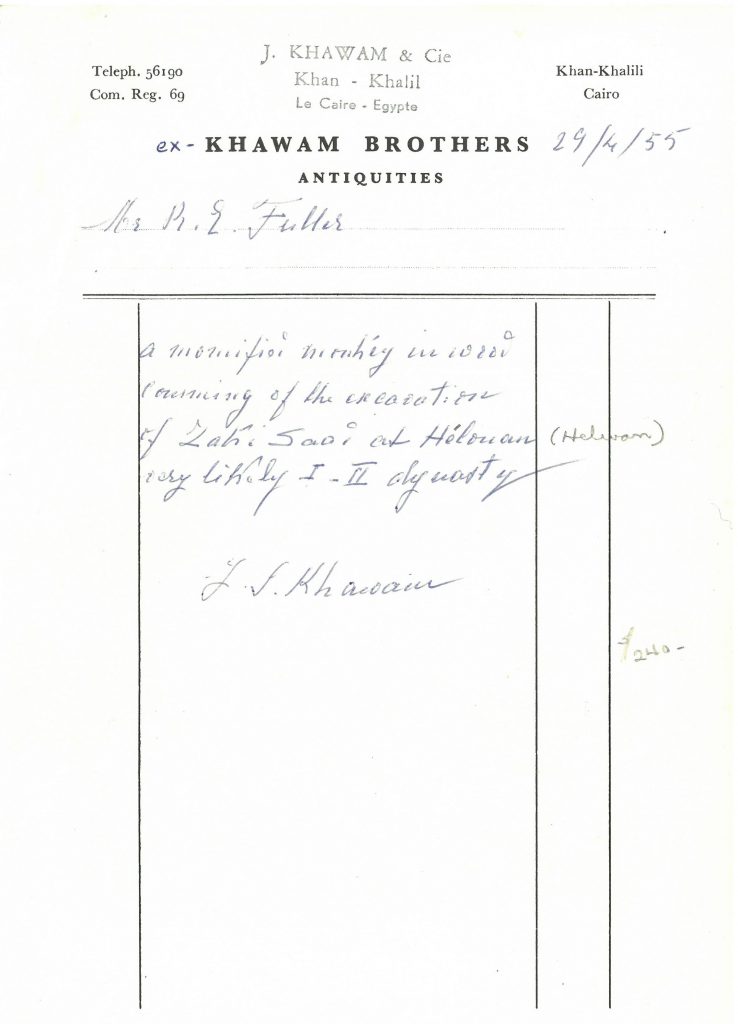 J. KHAWAM & Cie
Khan - Khalil
Le Caire - Egypte
Teleph. 56190
Com. Reg. 69
Khan-Khalili
Cairo
ex- KHAWAM BROTHERS 29/4/55
ANTIQUITIES
Mr R. E. Fuller
a momifiéi monkey in wood
comming of the excavation
of Zaki Saad at Hélouan (Helwan)
very likely I - II dynasty
J. S. Khawam
$240-